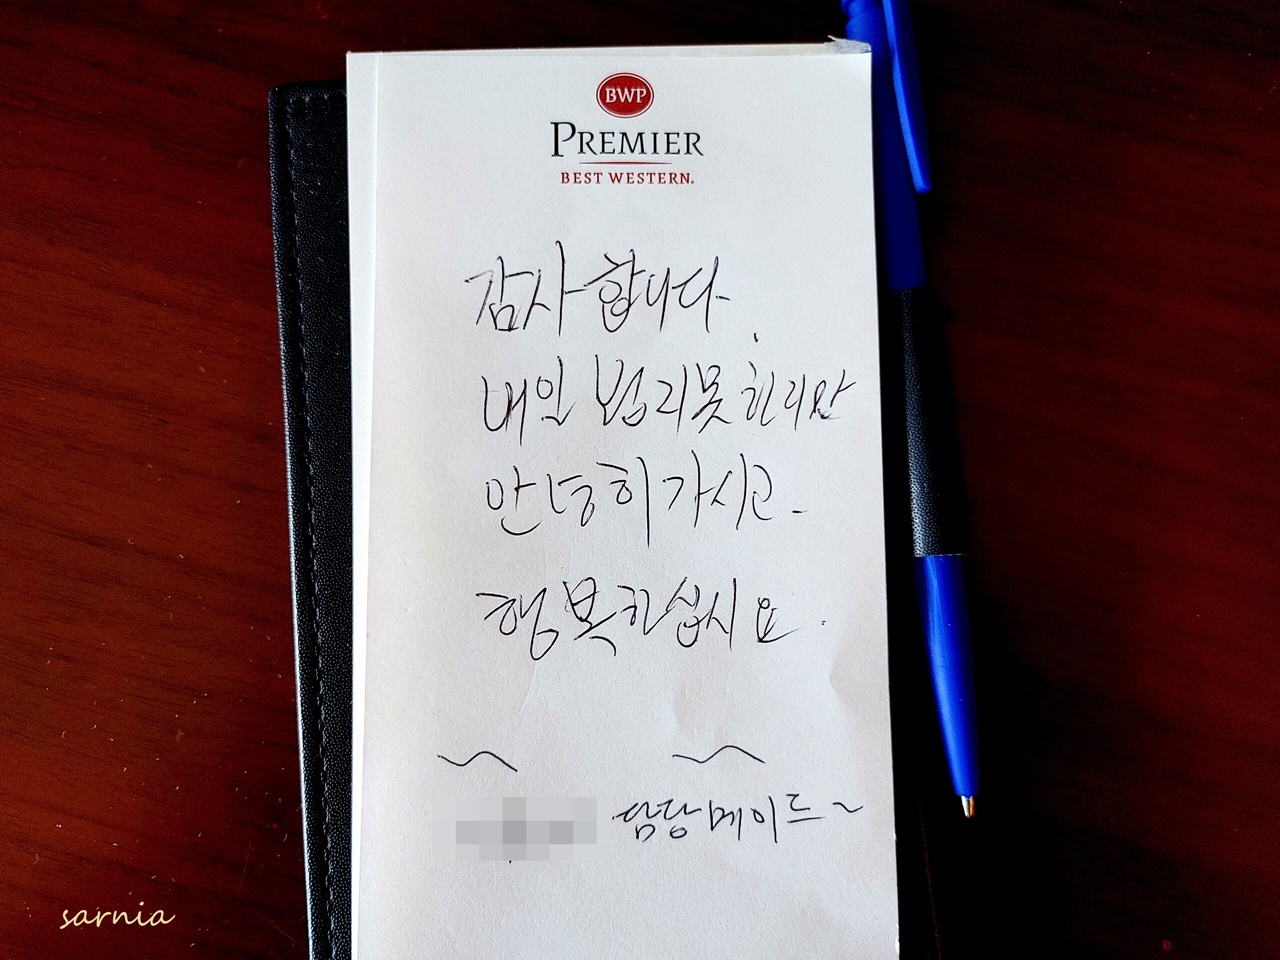 BWP
PREMIER
BEST WESTERN.
감사합니다.
내일 뵙지못하지만
안녕히 가시고.
행복하십시요.
담당메이드~
sarnia